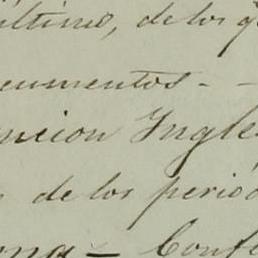 último, de los
cumentos - -
ncion Ingles
de los periód
ona - Conf